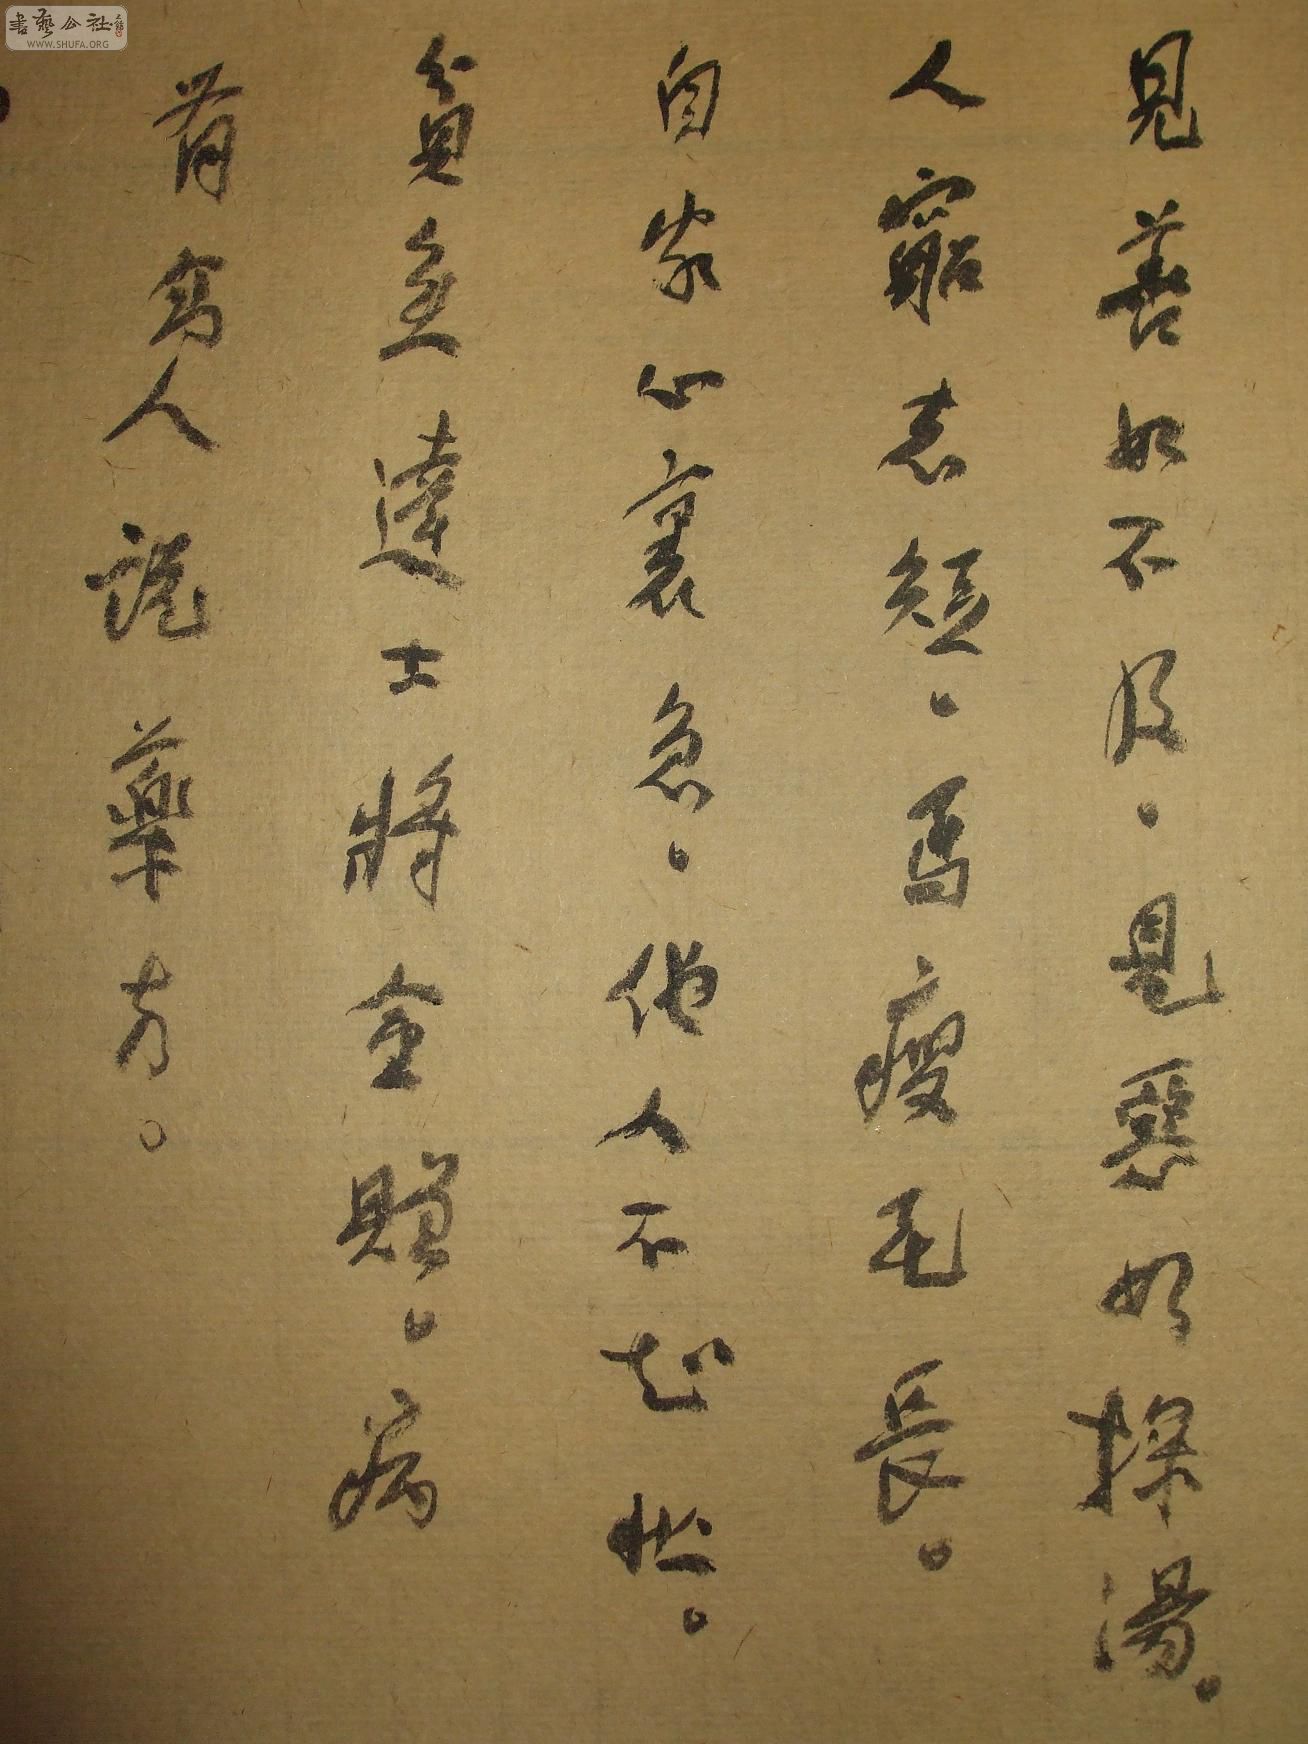 見善如不及。見惡如探湯。
人窮志短。馬瘦毛長。
自家心裏急。他人不知忙。
貧無達士將金贈。病
有高人說藥方。
書藝公社
WWW.SHUFA.ORG